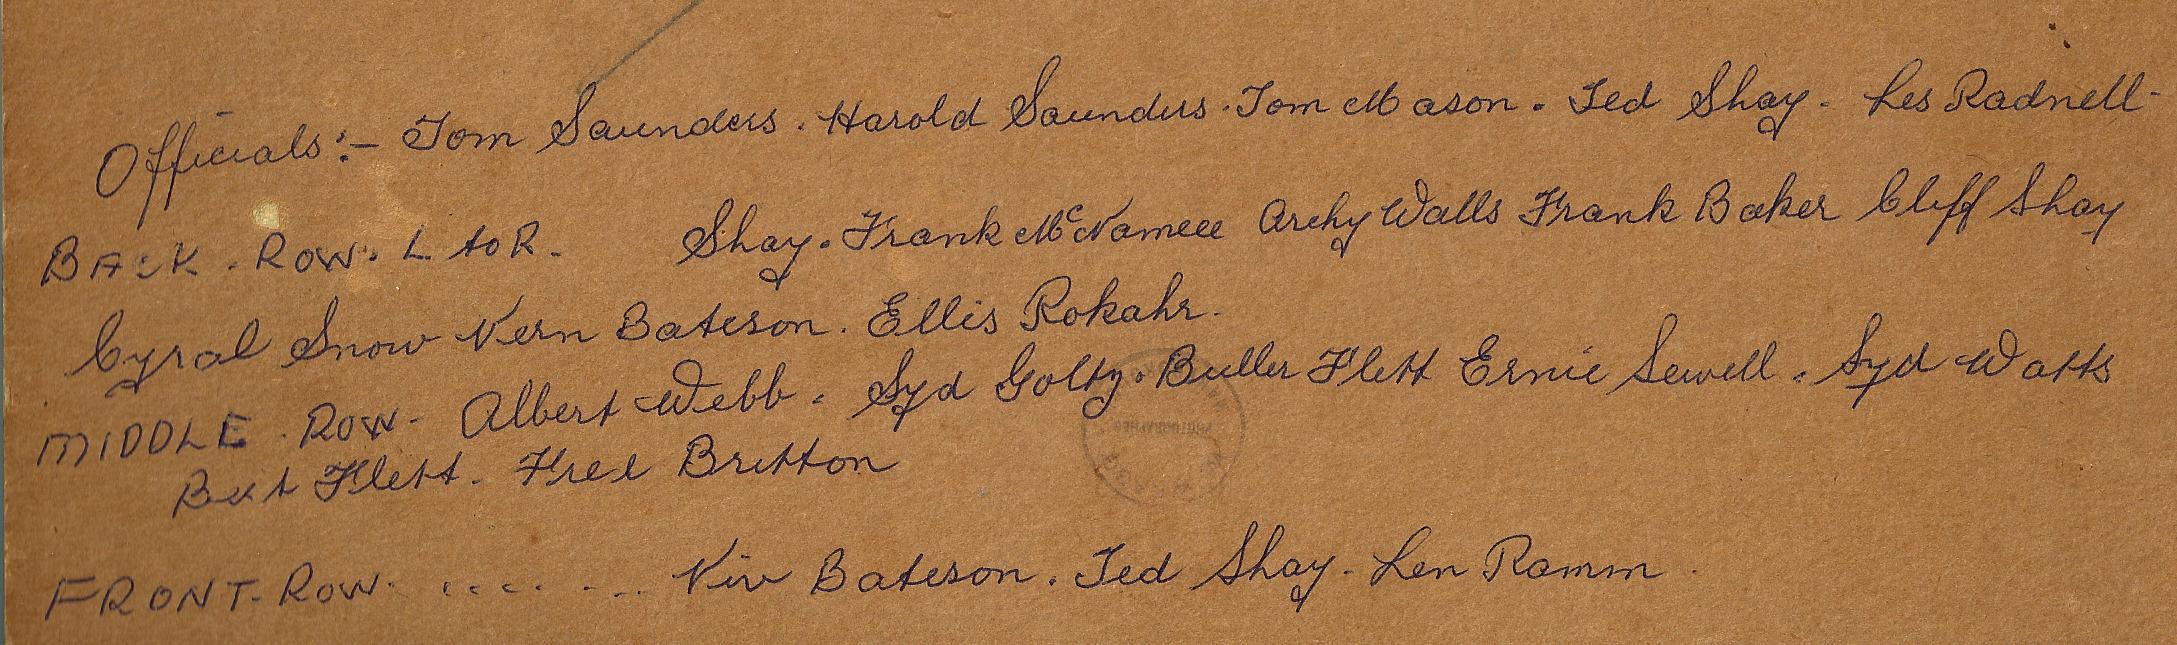 Officials:- Tom Saunders. Harold Saunders. Tom Mason. Ted Shay. Les Radnell-
BACK. ROW. L to R. Shay. Frank McNamee Archy Walls Frank Baker Cliff Shay
Cyral Snow Vern Bateson. Ellis Rokahr.
MIDDLE. ROW- Albert Webb. Syd Goltz. Buller Flett Ernie Sewell. Syd Watts
Bert Flett. Fred Britton
FRONT-ROW. .... ... Viv Bateson. Ted Shay. Len Ramm.